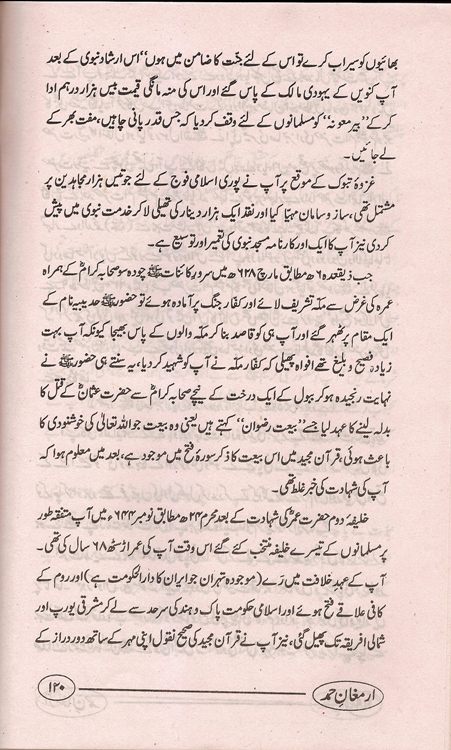 بھائیوں کو سیراب کرے تو اس کے لئے جنّت کا ضامن میں ہوں‘‘ اس ارشاد نبوی کے بعد
آپ کنویں کے یہودی مالک کے پاس گئے اور اس کی منہ مانگی قیمت بیس ہزار درہم ادا
کر کے ’’بیر معونہ‘‘ کو مسلمانوں کے لئے وقف کر دیا کہ جس قدر پانی چاہیں، مفت بھر کے
لے جائیں۔
غزوۂ تبوک کے موقع پر آپ نے پوری اسلامی فوج کے لئے جو تیس ہزار مجاہدین پر
مشتمل تھی، ساز و سامان مہیّا کیا اور نقد ایک ہزار دینار کی تھیلی لا کر خدمت نبوی میں پیش
کر دی نیز آپ کا ایک اور کارنامہ مسجد نبوی کی تعمیر اور توسیع ہے۔
جب ذیقعدہ ۶ھ مطابق مارچ ۶۲۸ھ میں سرور کائنات ﷺ چودہ سو صحابہ کرامؓ کے ہمراہ
عمرہ کی غرض سے مکّہ تشریف لائے اور کفار جنگ پر آمادہ ہوئے تو حضور ﷺ حدیبیہ نام کے
ایک مقام پر ٹھہر گئے اور آپ ہی کو قاصد بنا کر مکّہ والوں کے پاس بھیجا کیونکہ آپ بہت
زیادہ فصیح و بلیغ تھے افواہ پھیلی کہ کفار مکّہ نے آپ کو شہید کر دیا، یہ سنتے ہی حضور ﷺ نے
نہایت رنجیدہ ہو کر ببول کے ایک درخت کے نیچے صحابہ کرامؓ سے حضرت عثمانؓ کے قتل کا
بدلہ لینے کا عہد لیا جسے ’’بیعت رضوان‘‘ کہتے ہیں یعنی وہ بیعت جو اللہ تعالیٰ کی خوشنودی کا
باعث ہوئی، قرآن مجید میں اس بیعت کا ذکر سورۂ فتح میں موجود ہے، بعد میں معلوم ہوا کہ
آپ کی شہادت کی خبر غلط تھی۔
خلیفۂ دوم حضرت عمرؓ کی شہادت کے بعد محرم ۲۴ھ مطابق نومبر ۶۴۴ء میں آپ متفقہ طور
پر مسلمانوں کے تیسرے خلیفہ منتخب کئے گئے اس وقت آپ کی عمر اڑسٹھ ۶۸ سال کی تھی۔
آپ کے عہد خلافت میں رَے (موجودہ تہران جو ایران کا دارالحکومت ہے) اور روم کے
کافی علاقے فتح ہوئے اور اسلامی حکومت پاک و ہند کی سرحد سے لے کر مشرقی یورپ اور
شمالی افریقہ تک پھیل گئی، نیز آپ نے قرآن مجید کی صحیح نقول اپنی مہر کے ساتھ دور دراز کے
ارمغانِ حمد
۱۲۰